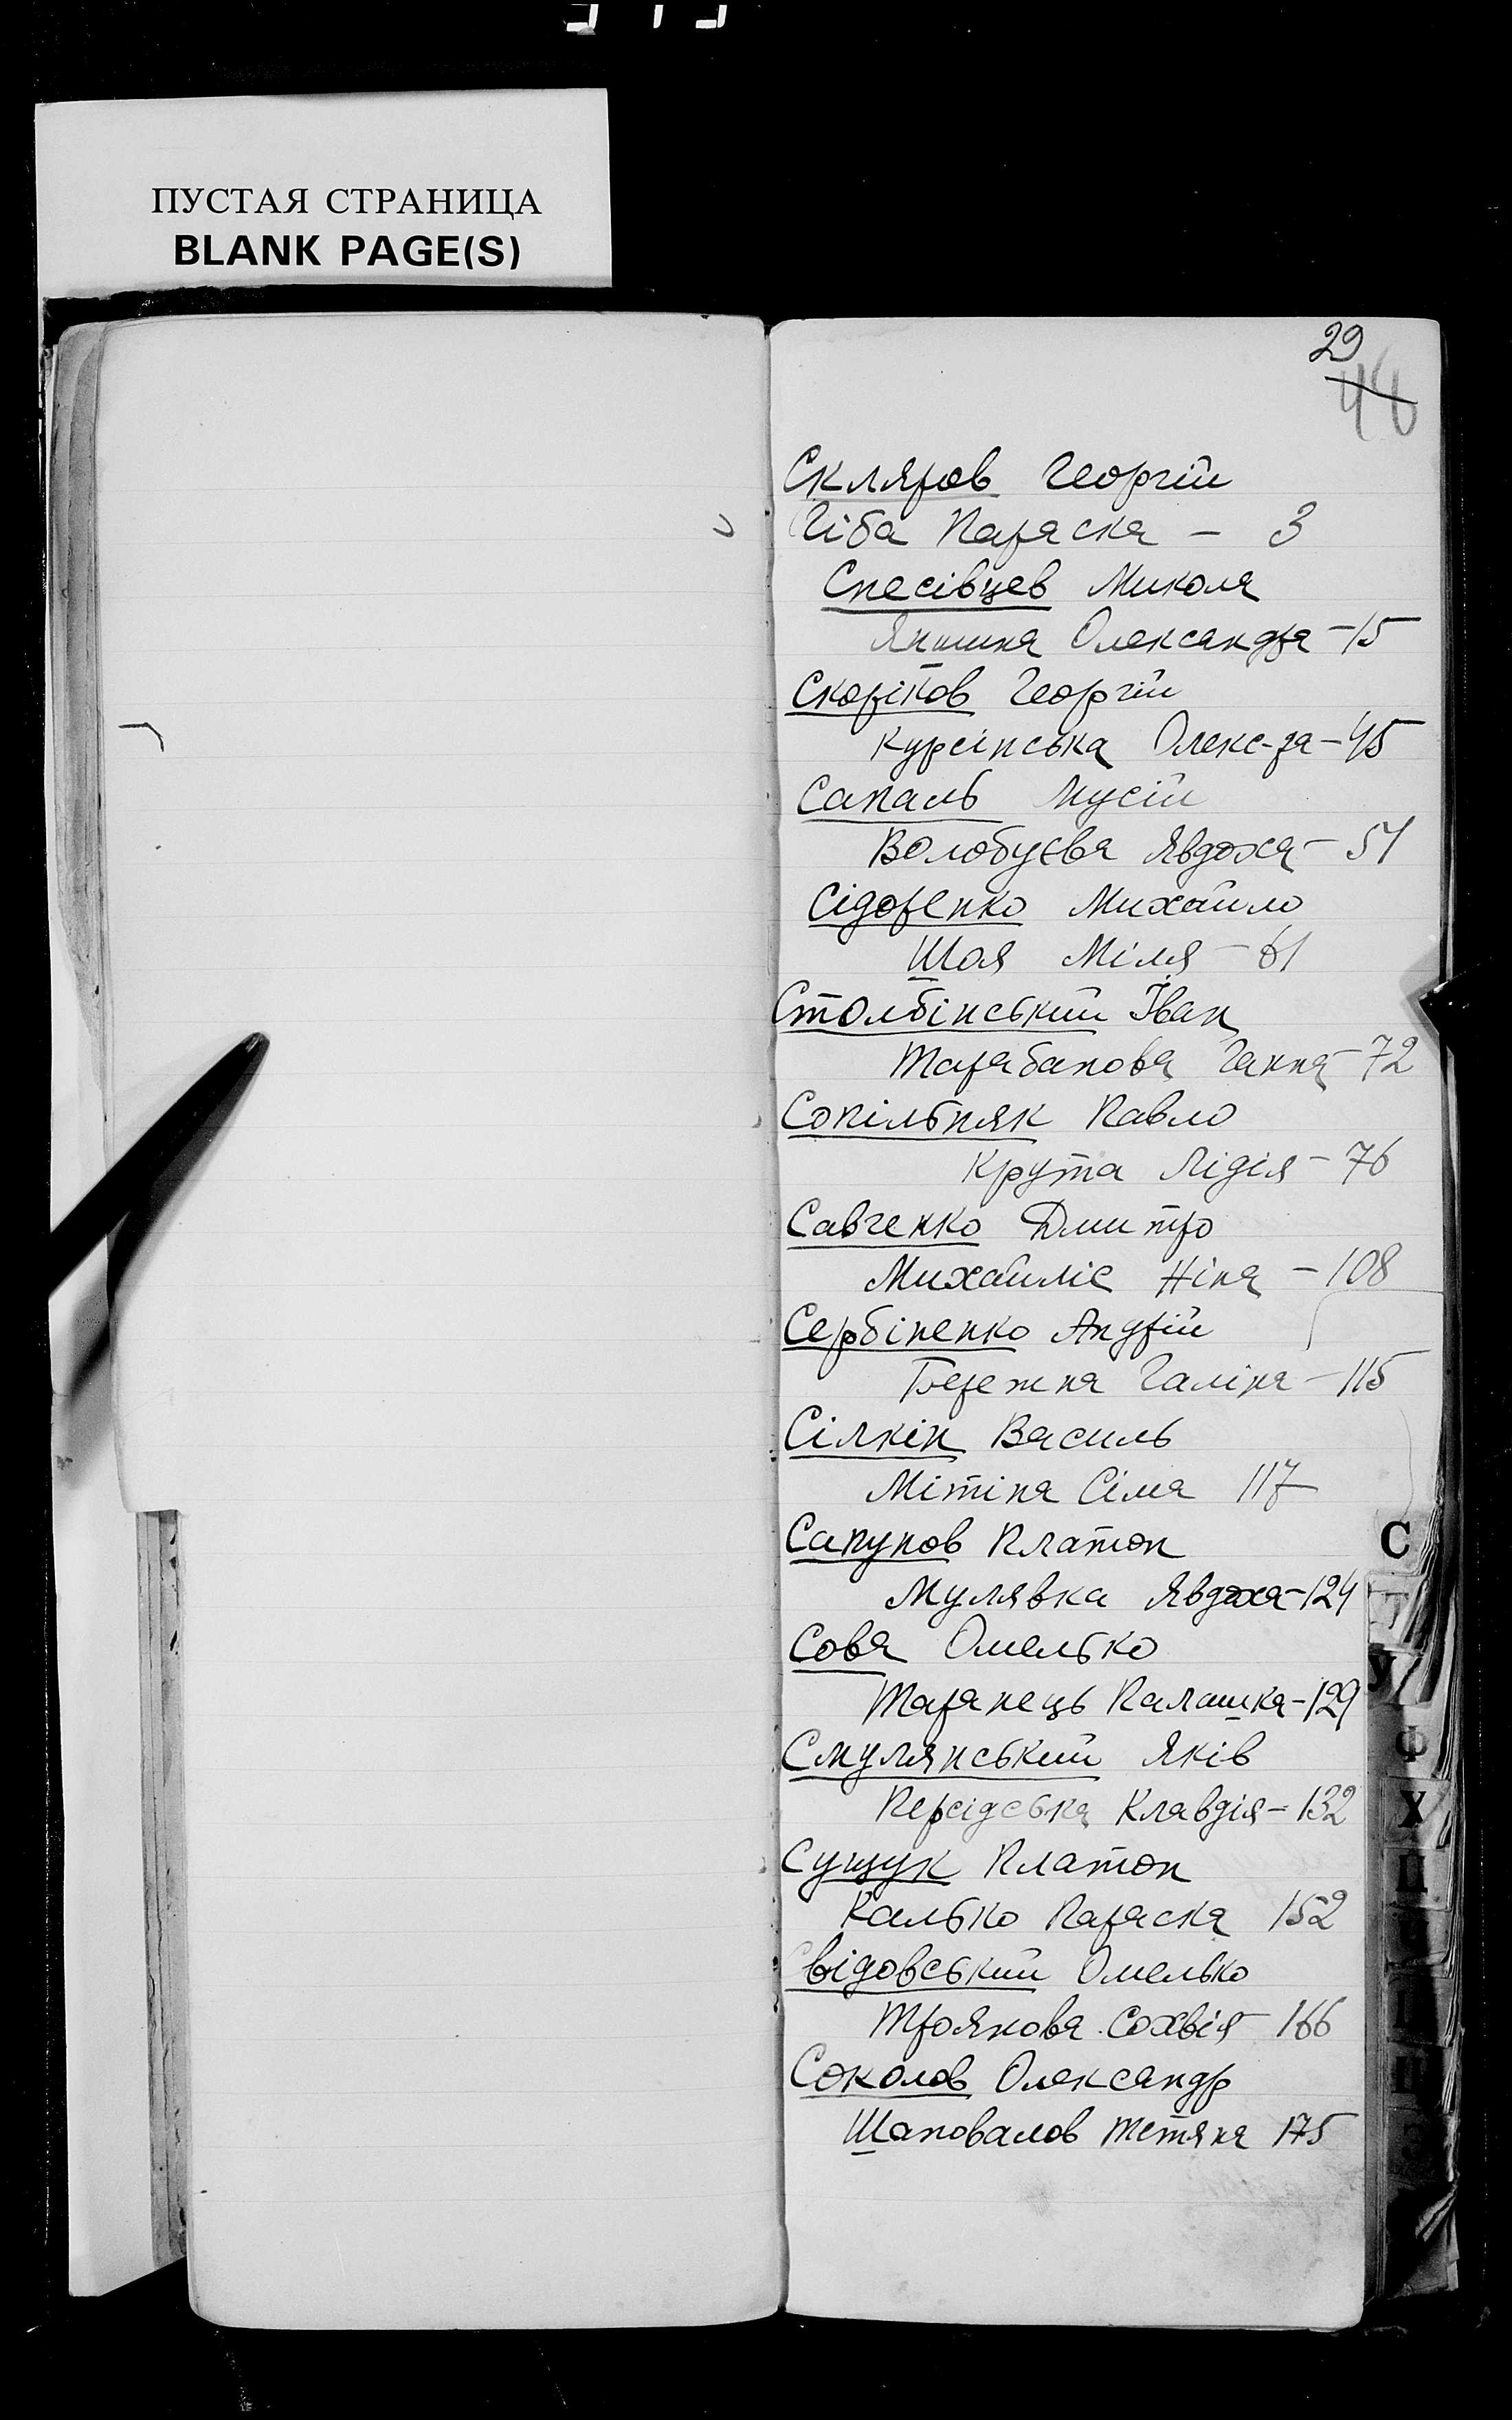 ПУСТАЯ СТРАНИЦА
BLANK PAGE(S)
29
46
Скляров Георгій
Гіба Параска - 3
Спесівцев Микола
Яншина Олександра - 15
Скоріков Георгій
Курсінська Олекс-ра - 45
Сапаль Мусій
Волобуєва Явдоха - 51
Сідоренко Михайло
Шоя Міля - 61
Столбінський Іван
Тарабанова Ганна - 72
Сопільняк Павло
Крута Лідія - 76
Савченко Дмитро
Михайліс Ніна - 108
Сербіненко Андрій
Бережна Галіна - 115
Сілкін Василь
Мітіна Сіма 117
Сапунов Платон
Мулявка Явдоха - 124
Сова Омелько
Таранець Палашка - 129
Смулянський Яків
Персідська Клавдія - 132
Сущук Платон
Калько Параска 152
Свідовський Омелько
Троянова Сохвія - 166
Соколов Олександр
Шаповалов Тетяна 175
С
Т
У
Ф
Х
Ц